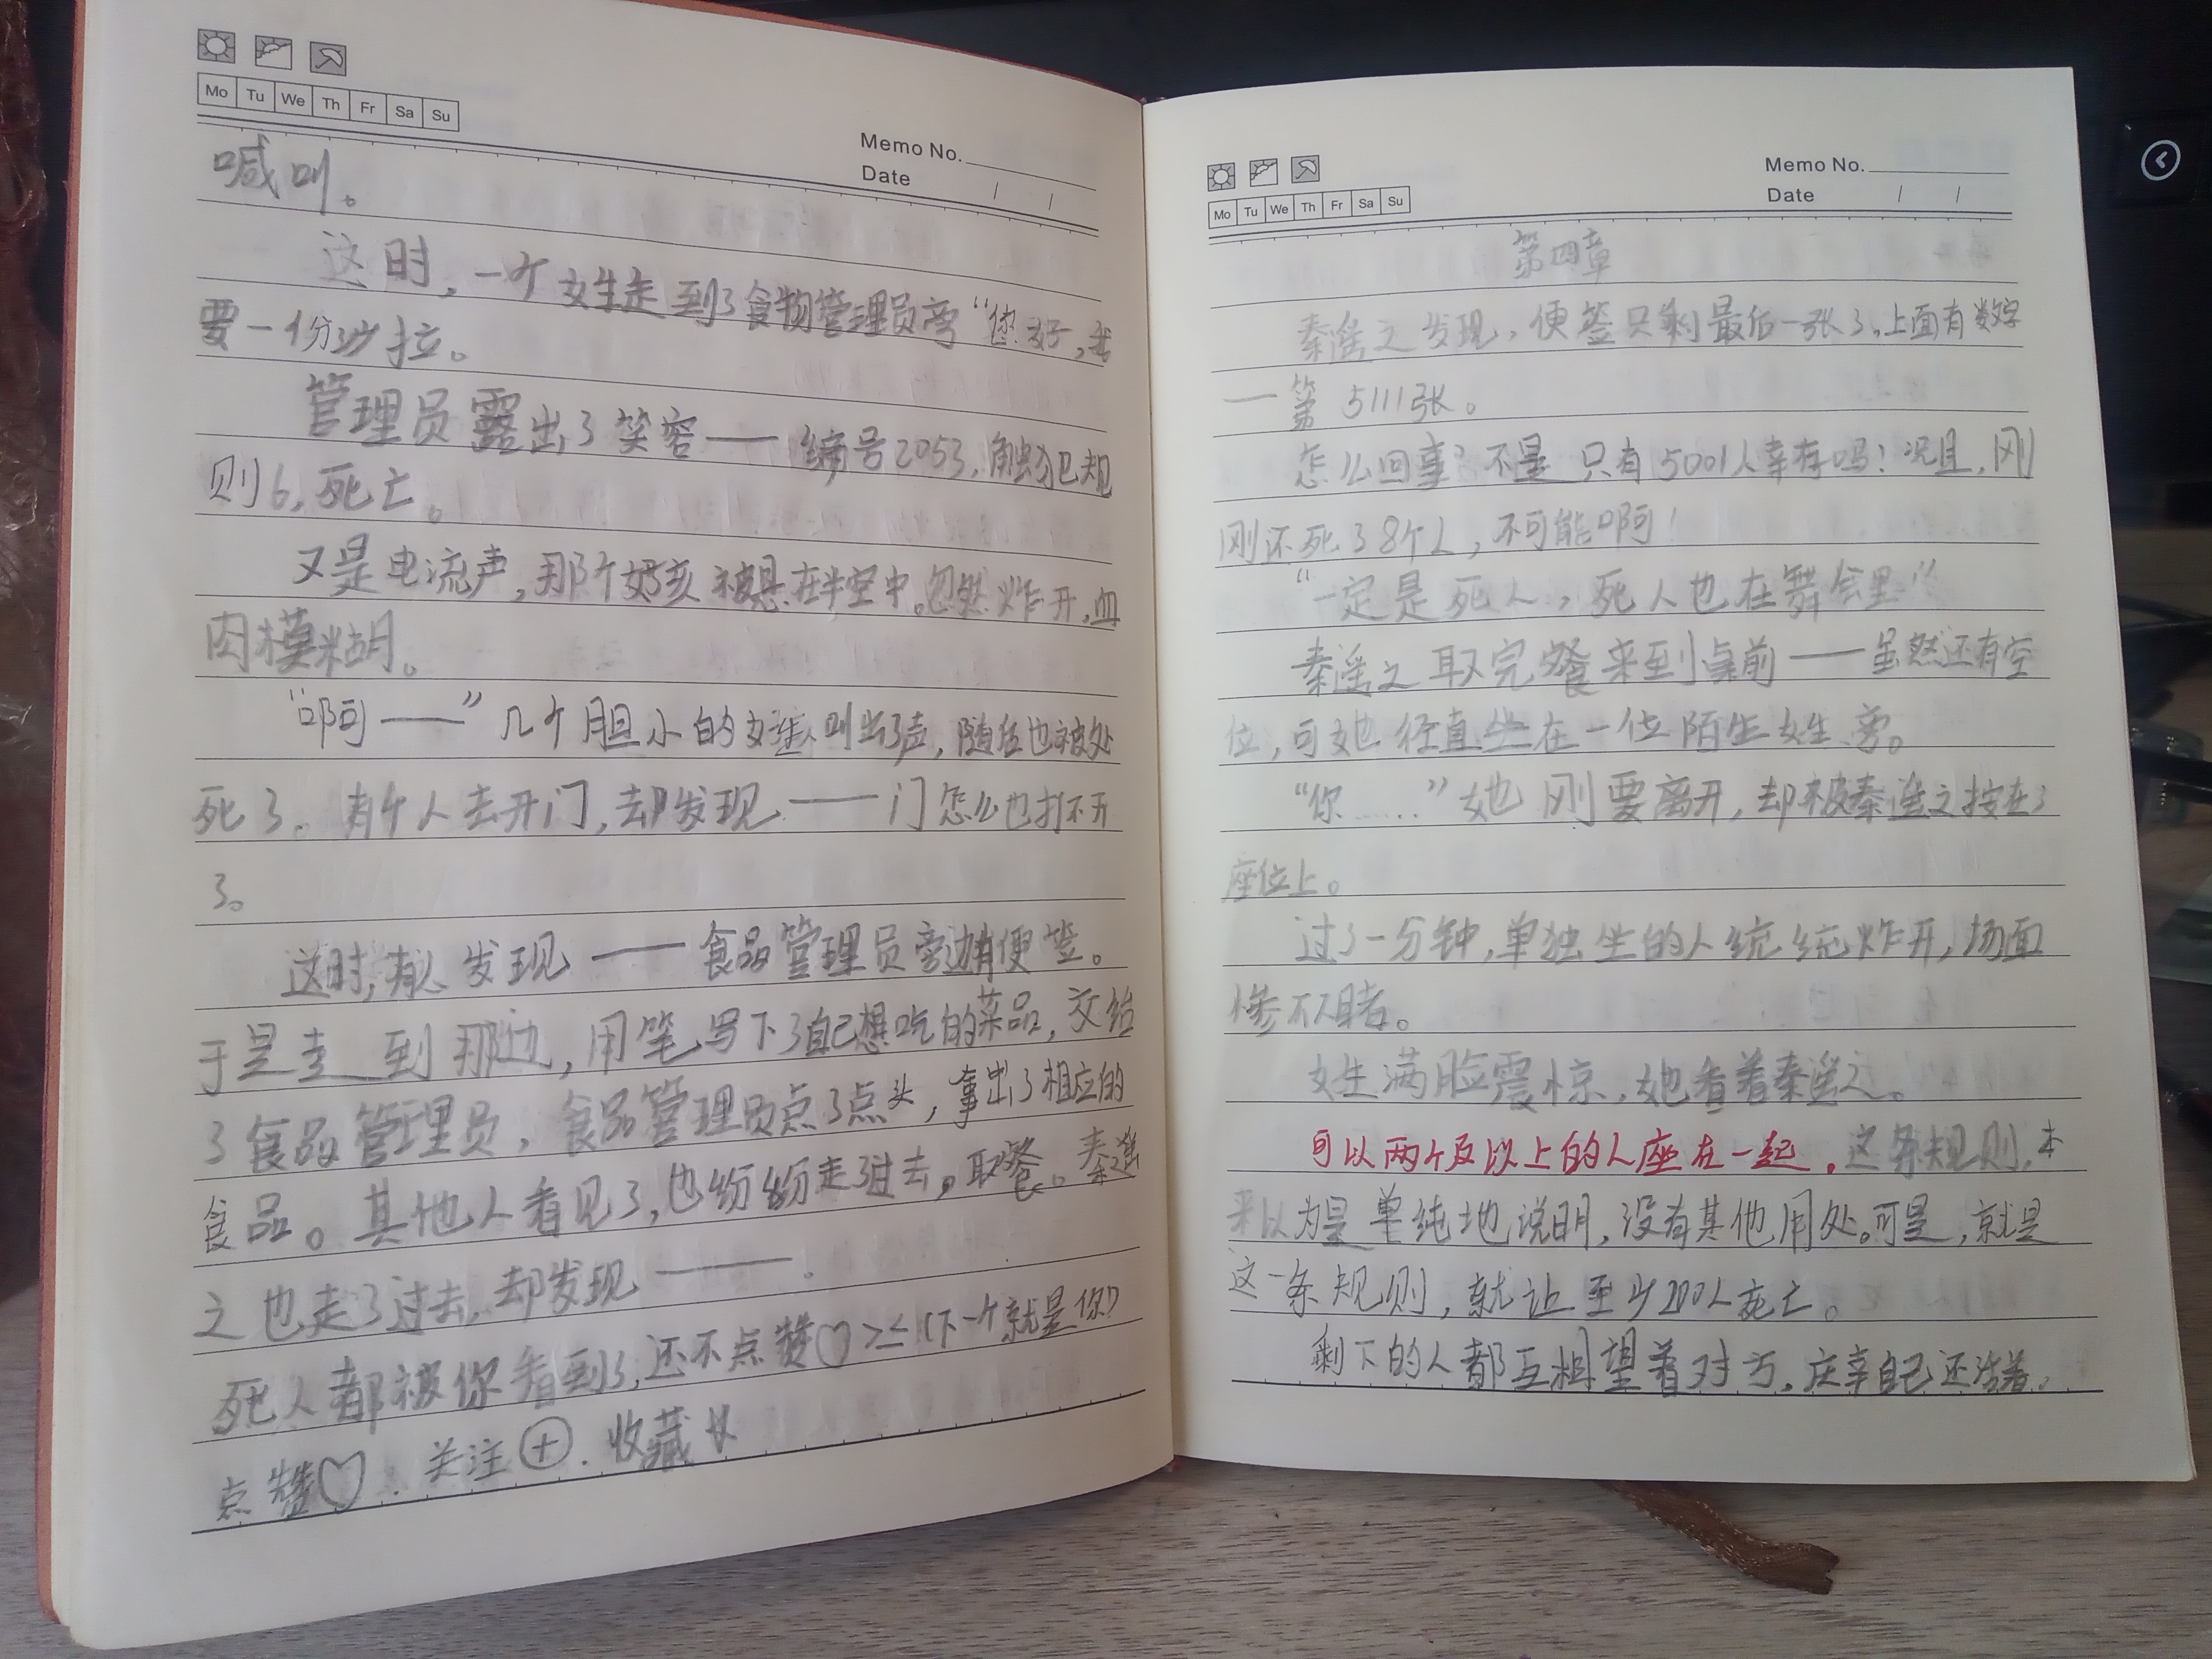 Mo Tu We Th Fr Sa Su
Memo No.
Date / /
喊叫。
这时,一个女生走到了食物管理员旁“您好,我
要一份沙拉。
管理员露出了笑容——编号2053,触犯规
则6,死亡。
又是电流声,那个女孩被悬在半空中。忽然炸开,血
肉模糊。
“啊——”几个胆小的女生叫出了声,随后也被处
死了。有个人去开门,却发现——门怎么也打不开
了。
这时,有人发现——食品管理员旁边有便签。
于是走到那边,用笔写下了自己想吃的菜品,交给
了食品管理员,食品管理员点了点头,拿出了相应的
食品。其他人看见了,也纷纷走了过去。取餐。秦遥
之也走了过去,却发现——.
死人都被你看到了,还不点赞♡>≤(下一个就是你!)
点赞♡.关注⊕.收藏
Mo Tu We Th Fr Sa Su
Memo No.
Date / /
第四章
秦遥之发现,便签只剩最后一张了。上面有数字
—第5111张。
怎么回事?不是只有5001人幸存吗!况且,刚
刚还死了8个人,不可能啊!
“一定是死人,死人也在舞会里!”
秦遥之取完餐来到桌前——虽然还有空
位,可她径直坐在一位陌生女生旁。
“你……”她刚要离开,却被秦遥之按在了
座位上。
过了一分钟,单独坐的人统统炸开,场面
惨不人睹。
女生满脸震惊,她看着秦遥之。
可以两个及以上的人座在一起。这条规则,本
来以为是单纯地说明,没有其他用处。可是,就是
这一条规则,就让至少200人死亡。
剩下的人都互相望着对方,庆幸自己还活着。